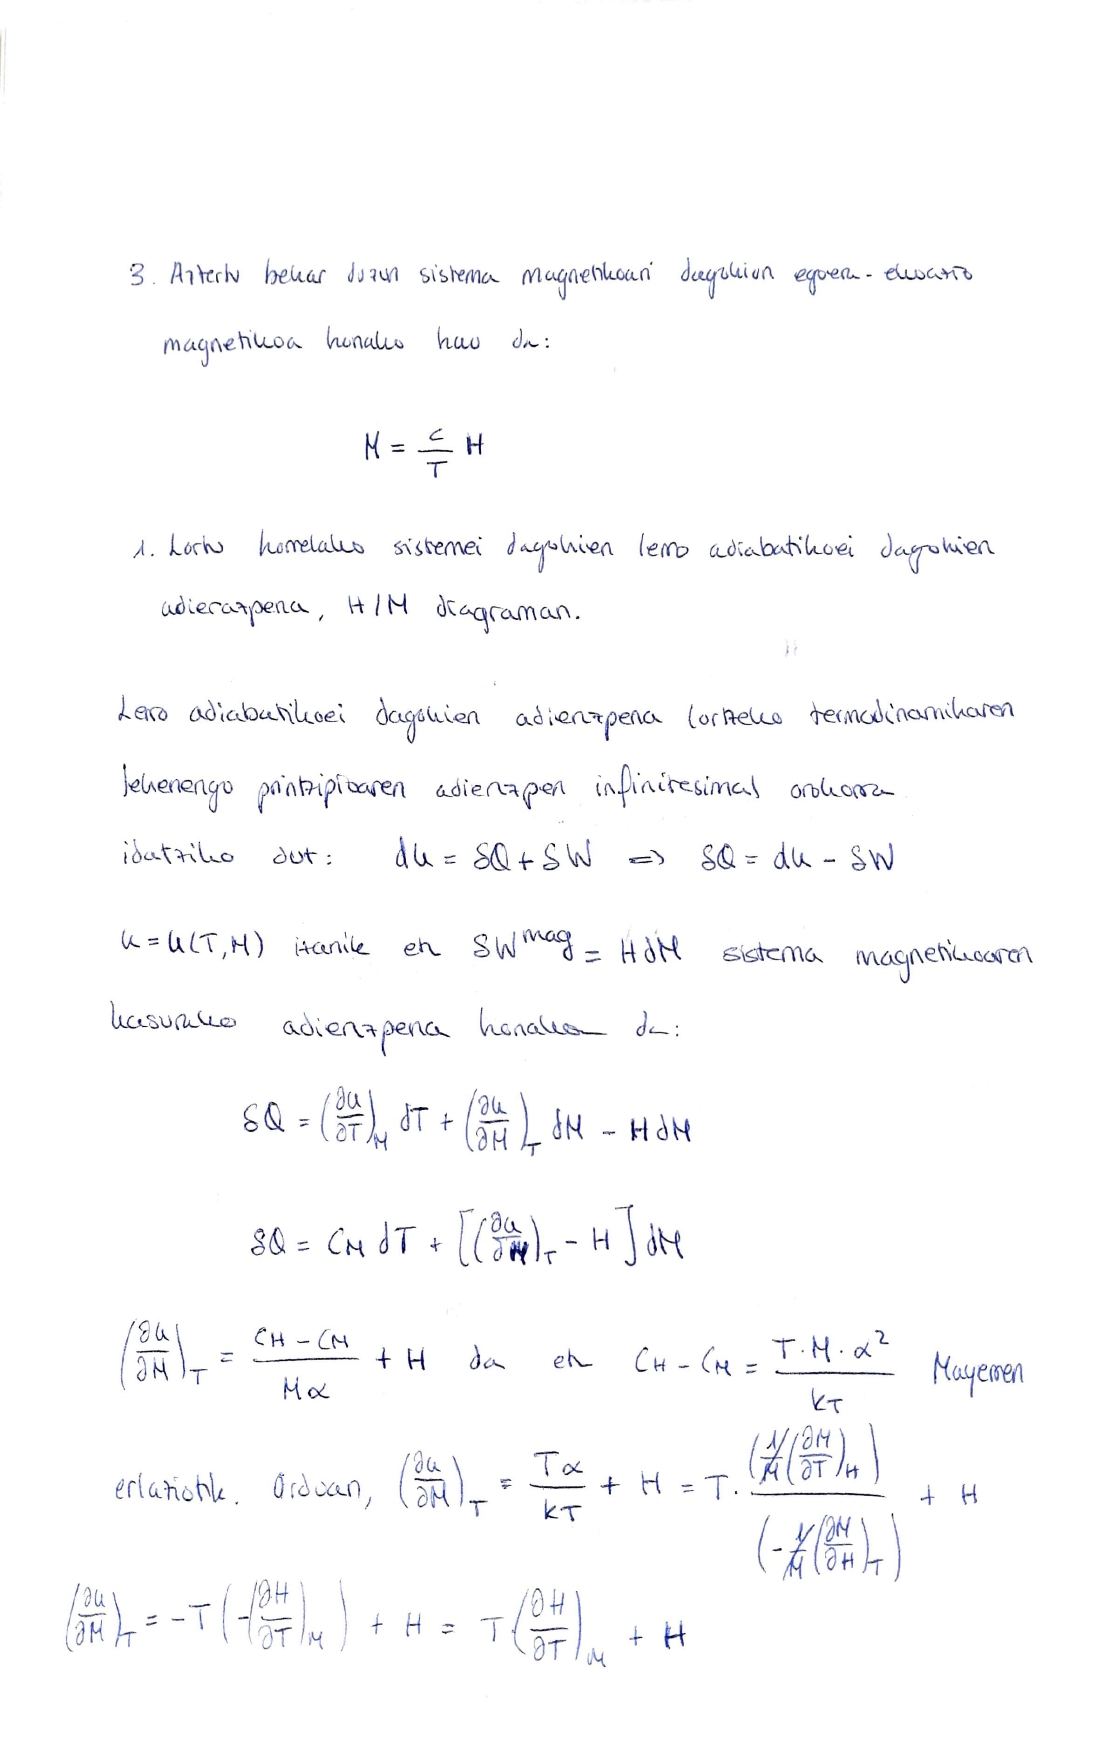 3. Aztertu behar duzun sistema magnetikoari dagokion egoera-ekuazio
magnetikoa honako hau da:
M = C/T H
1. Lortu horrelako sistemei dagokien lerro adiabatikoei dagokien
adierazpena, H/M diagraman.
Lerro adiabatikoei dagokien adierazpena lortzeko termodinamikaren
lehenengo printzipioaren adierazpen infinitesimal orokorra
idatziko dut: dU = δQ + δW => δQ = dU - δW
U = U(T,M) izanik eta δW^mag = HdM sistema magnetikoaren
kasurako adierazpena honakoa da:
δQ = (∂U/∂T)_M dT + (∂U/∂M)_T dM - HdM
δQ = C_M dT + [(∂U/∂M)_T - H] dM
(∂U/∂M)_T = (C_H - C_M)/(Mα) + H da eta C_H - C_M = (T·M·α²)/k_T Mayerren
erlaziotik. Orduan, (∂U/∂M)_T = Tα/k_T + H = T· (1/M (∂M/∂T)_H) / (-1/M (∂M/∂H)_T) + H
(∂U/∂M)_T = -T (-(∂H/∂T)_M) + H = T (∂H/∂T)_M + H